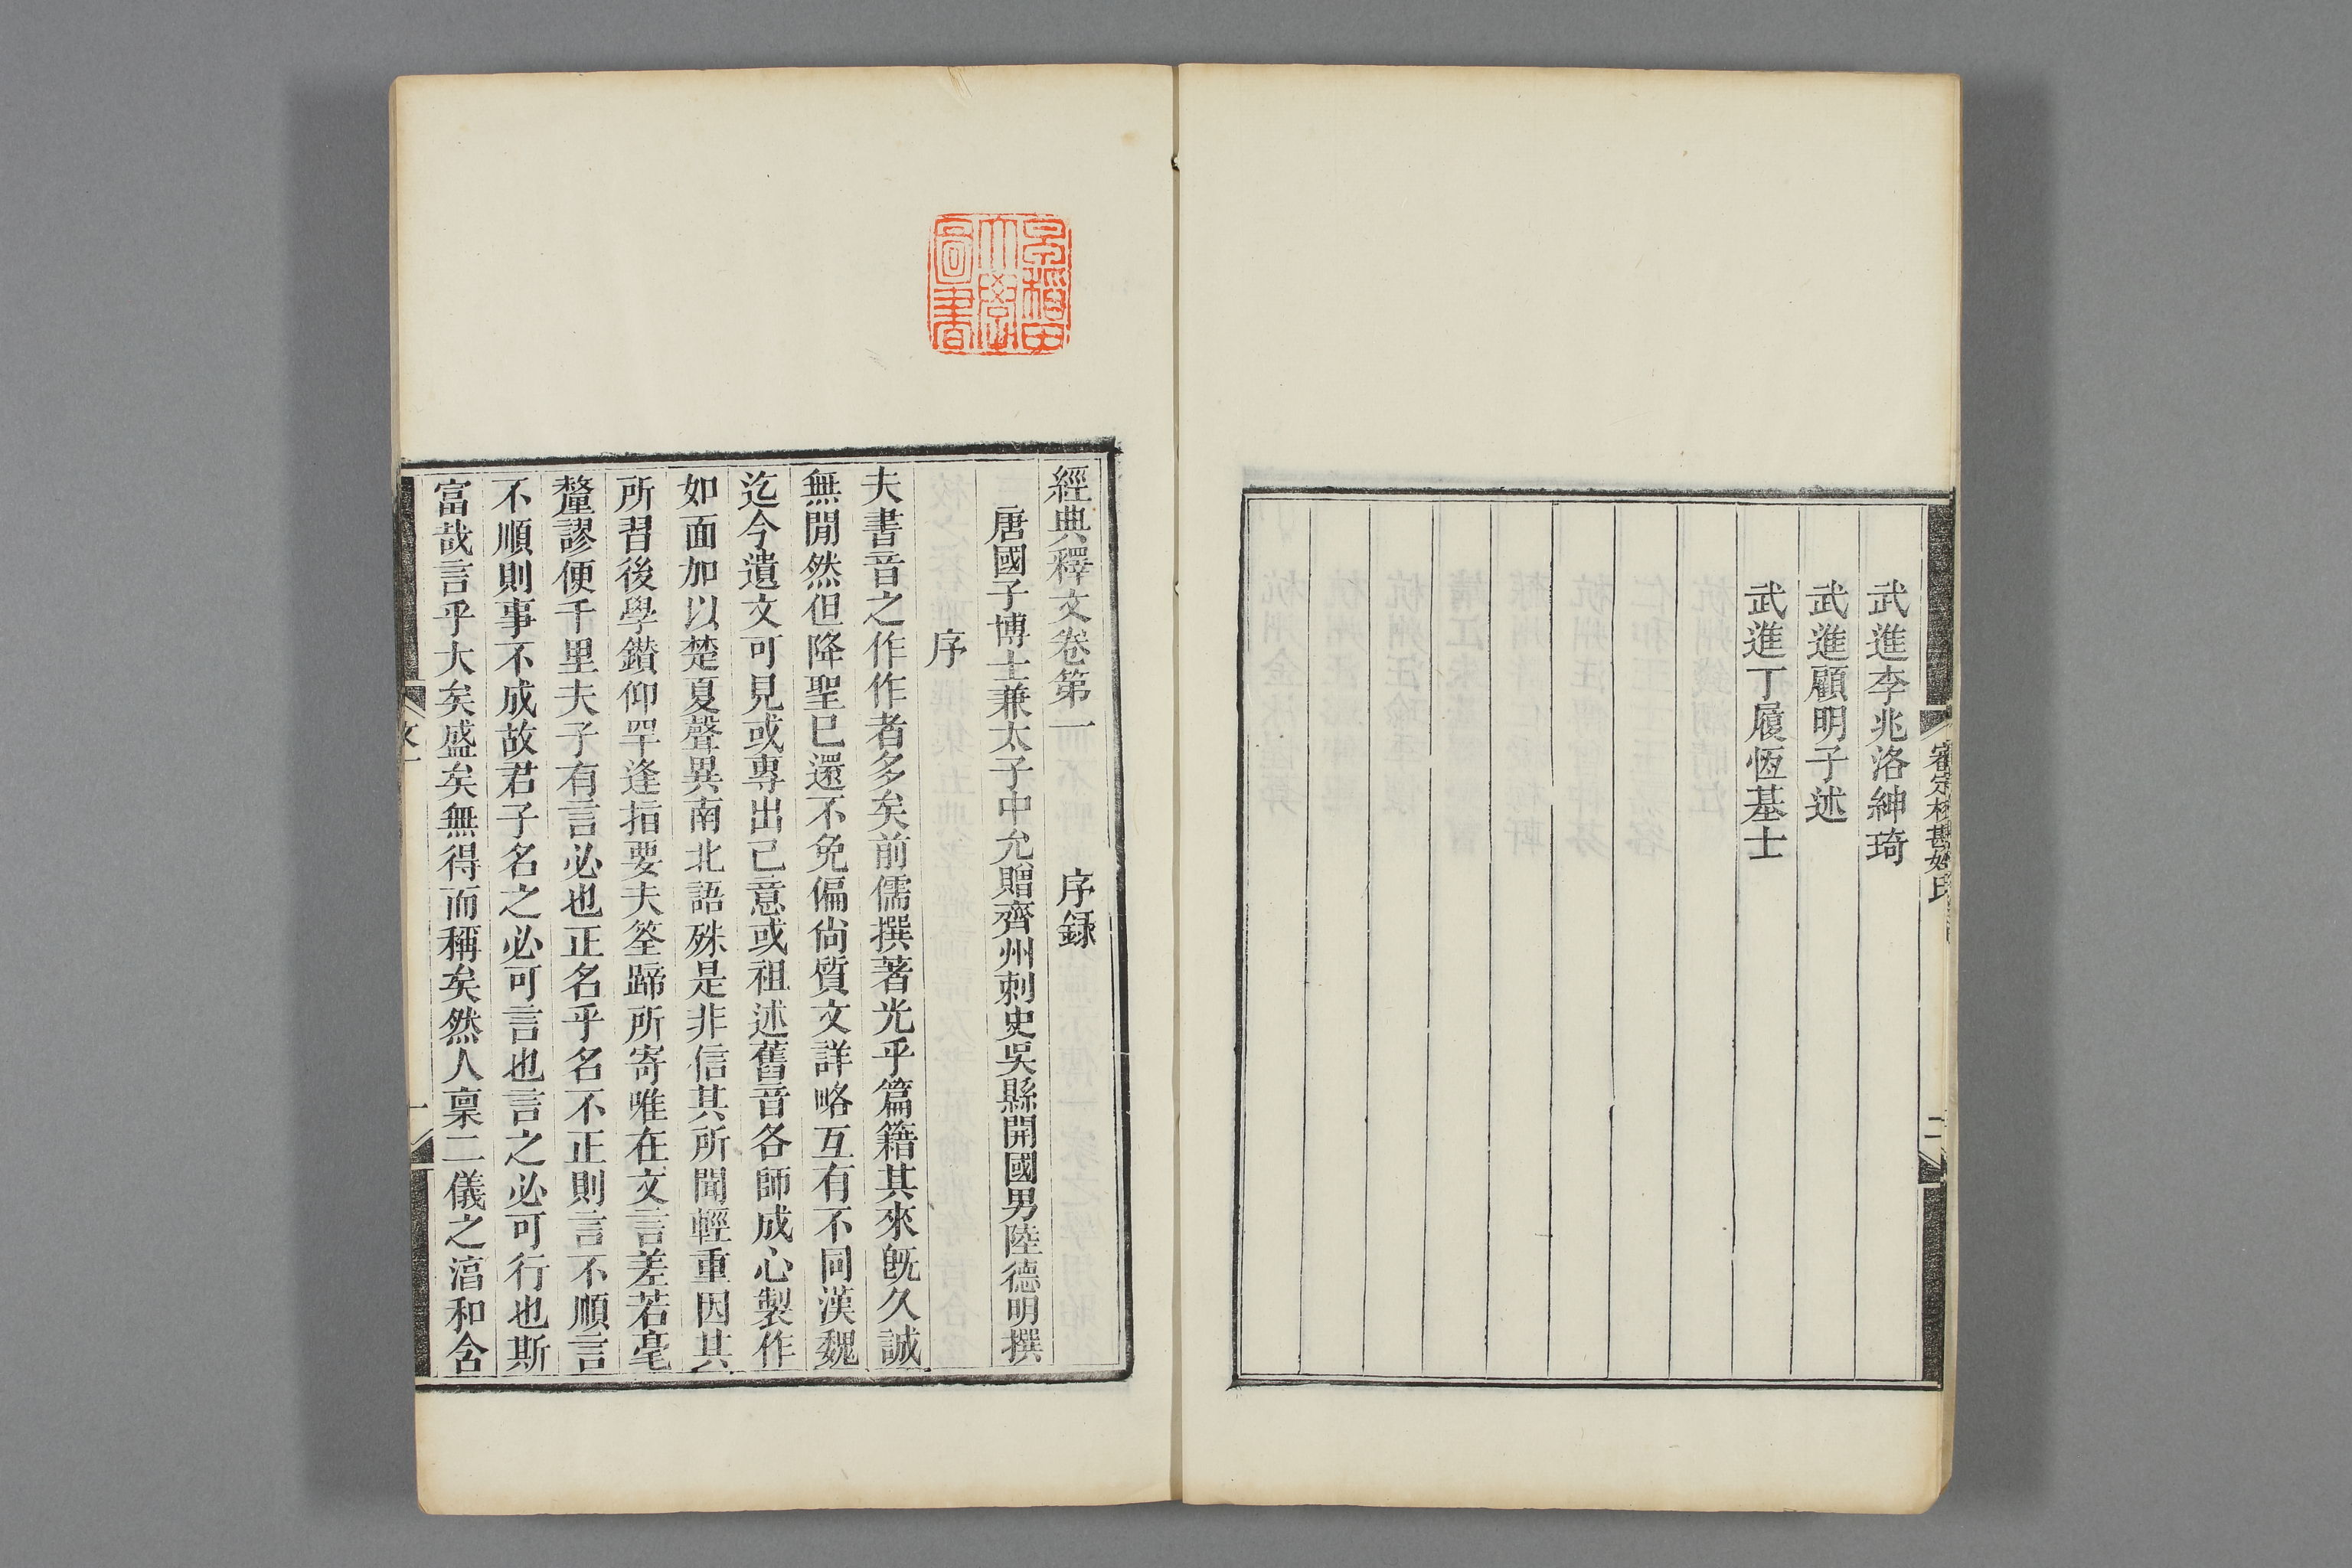 審定校勘姓氏
二
武進李兆洛紳琦
武進顧明子述
武進丁履恆基士
早稻田大學圖書
經典釋文卷第一 序録
唐國子博士兼太子中允贈齊州刺史吳縣開國男陸德明撰
序
夫書音之作作者多矣前儒撰著光乎篇籍其來旣久誠
無閒然但降聖已還不免偏尙質文詳略互有不同漢魏
迄今遺文可見或專出己意或祖述舊音各師成心製作
如面加以楚夏聲異南北語殊是非信其所聞輕重因其
所習後學鑚仰罕逢指要夫筌蹄所寄唯在文言差若毫
釐謬便千里夫子有言必也正名乎名不正則言不順言
不順則事不成故君子名之必可言也言之必可行也斯
富哉言乎大矣盛矣無得而稱矣然人稟二儀之湻和含